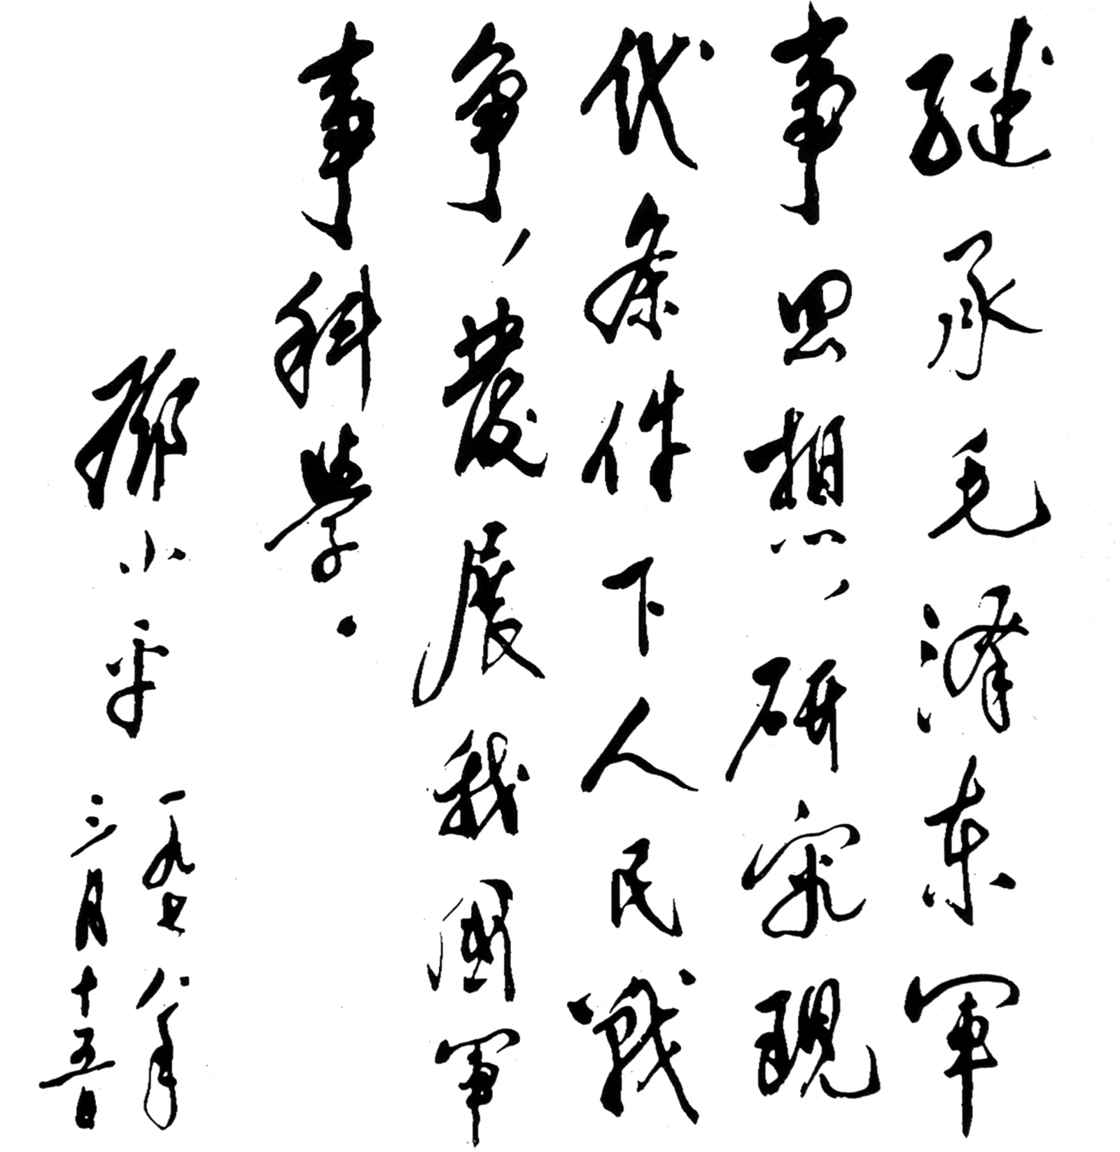 继承毛泽东军
事思想，研究现
代条件下人民战
争，發展我國军
事科學。
邓小平
一九七八年
三月十五日